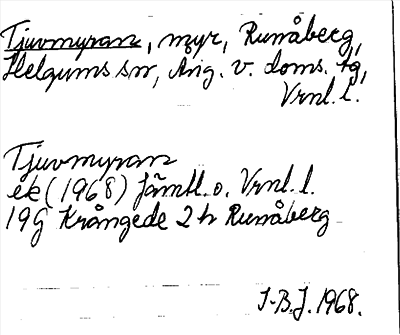 Tjuvmyran, myr, Runåberg,
Helgums sn, Ång. v. doms. tg,
Vrnl. l.
Tjuvmyran
ek (1968) Jämtl. o. Vrnl. l.
19G Krångede 2h Runåberg
J-B.J. 1968.